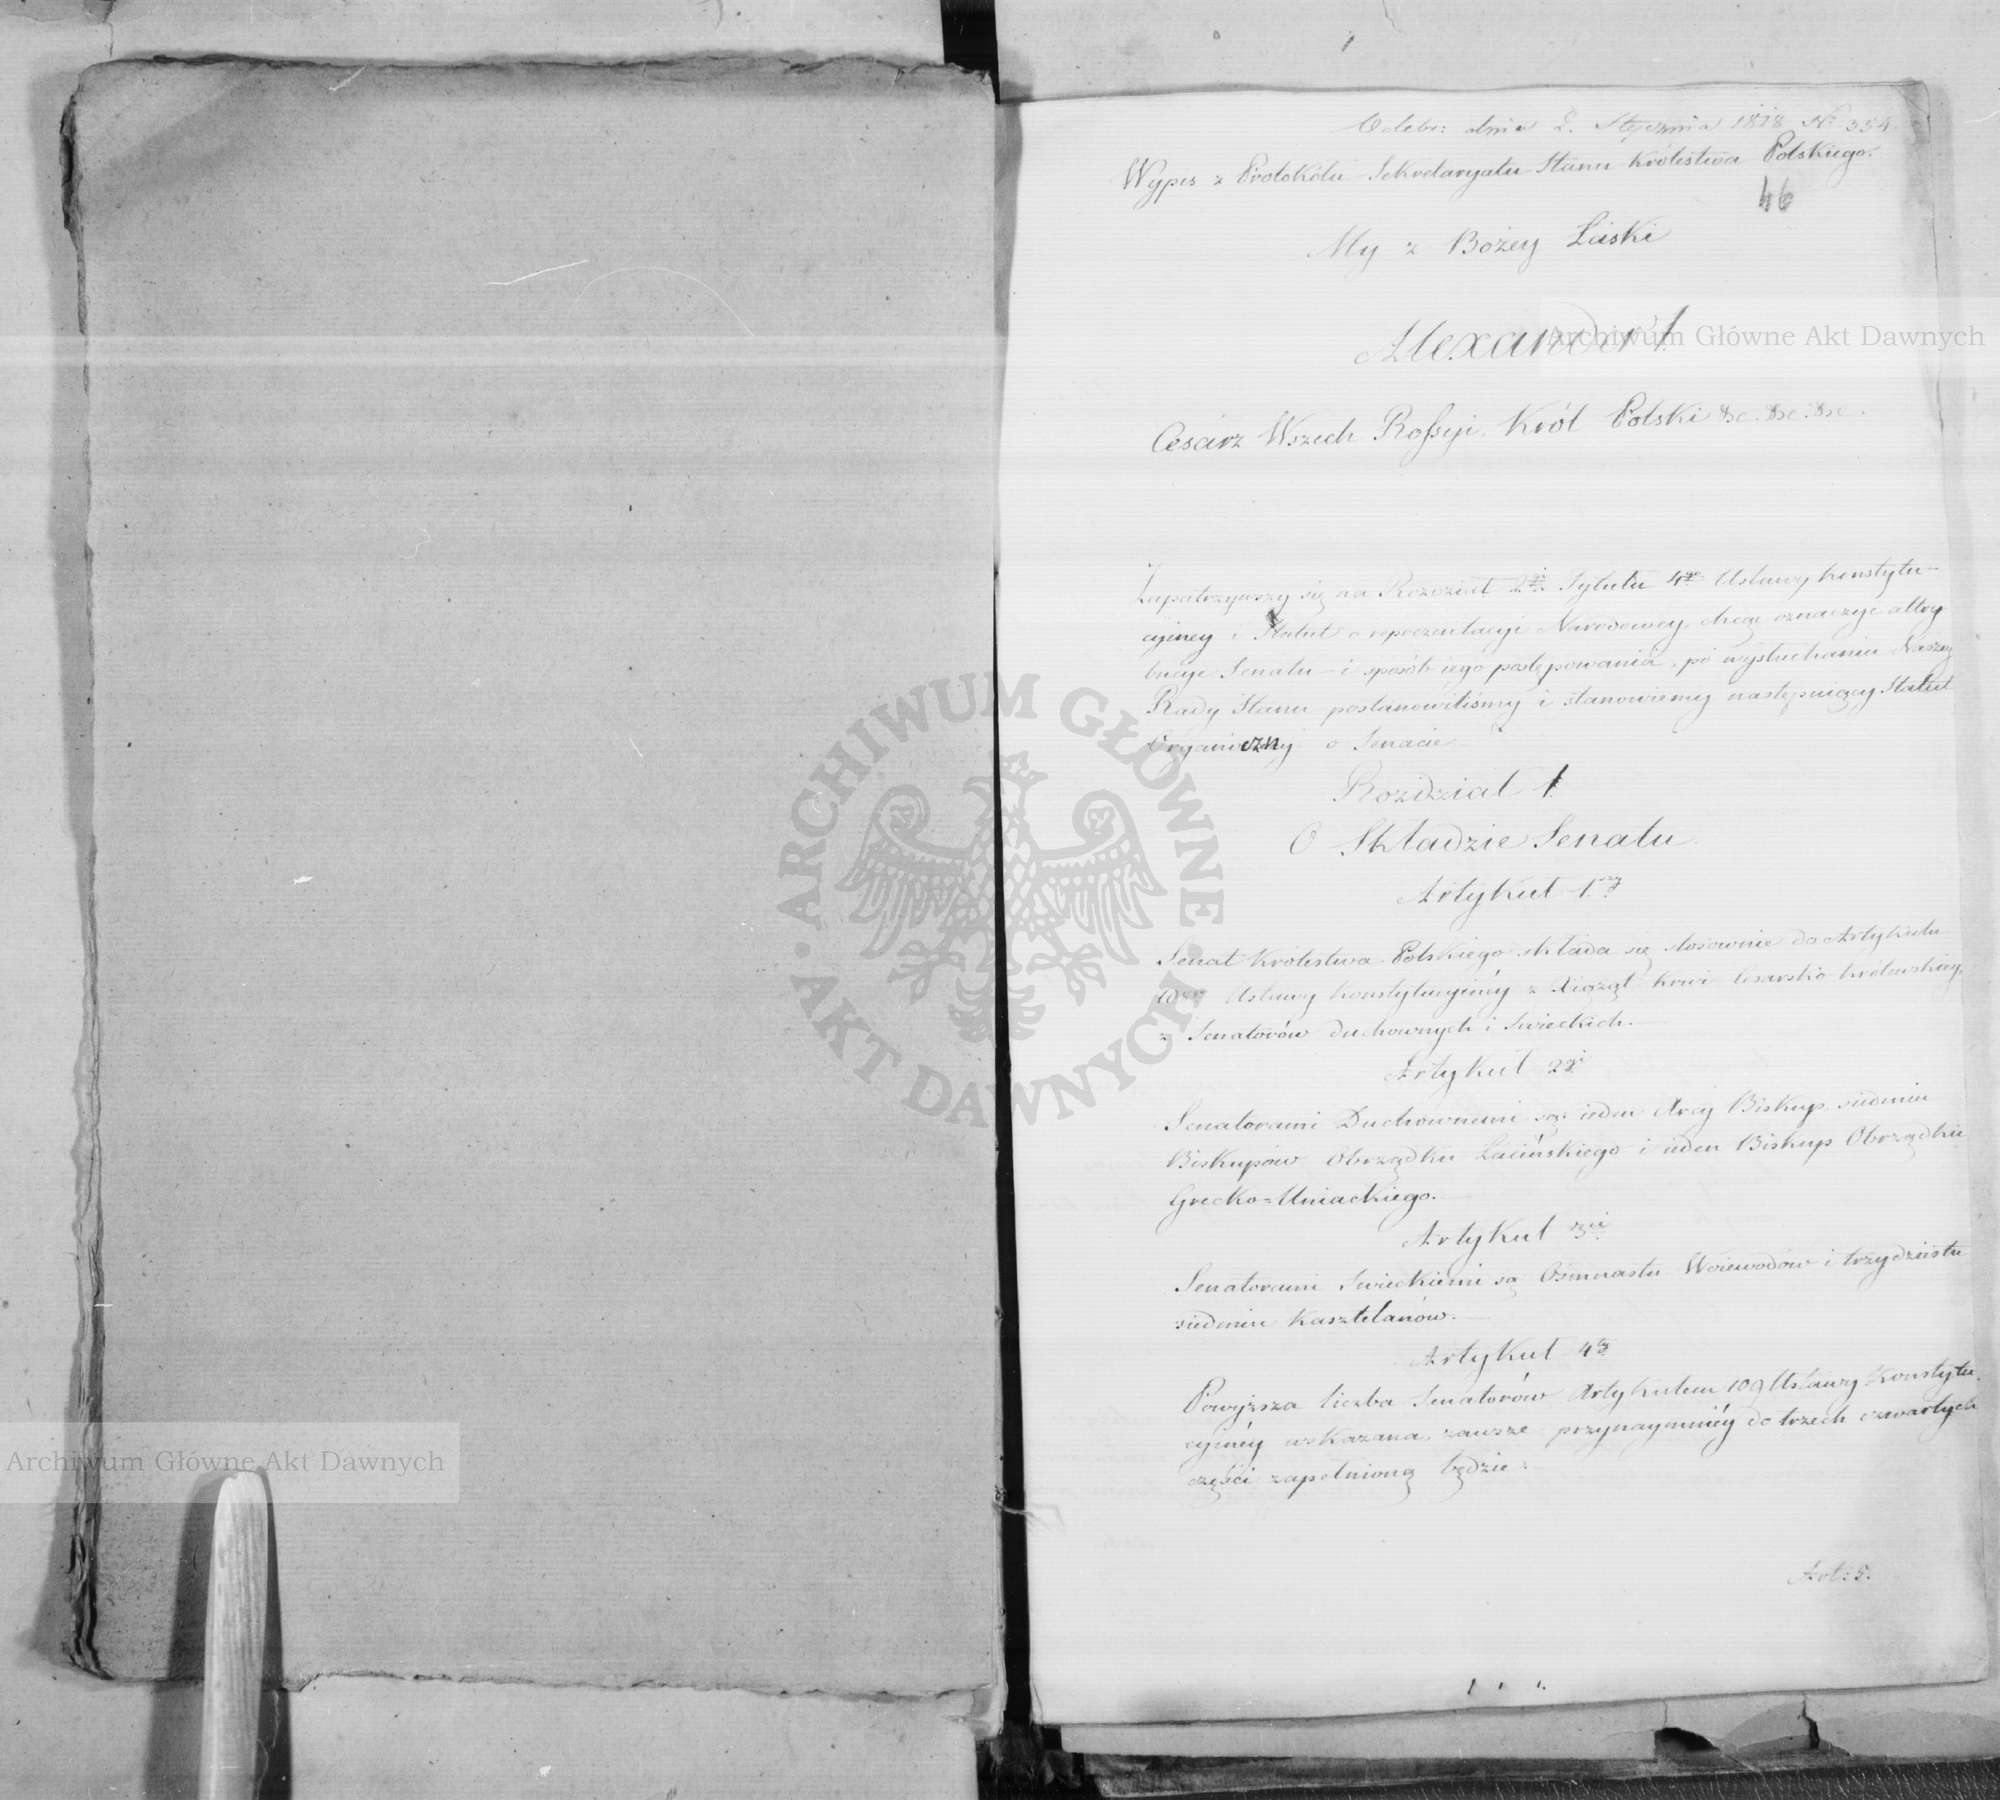 Odebr: dnia 2. Stycznia 1818 Nr 354.
Wypis z Protokółu Sekretaryatu Stanu Królestwa Polskiego.
46
My z Bożey Łaski
Alexander I.
Cesarz Wszech Rossyi, Król Polski &c. &c. &c.
Zapatrzywszy się na Rozdział 2gi Tytułu 4go Ustawy konstytu-
cyiney i Statut o reprezentacyi Narodowey, chcąc oznaczyć attry
bucye Senatu i sposób iego postępowania, po wysłuchaniu Naszey
Rady Stanu postanowiliśmy i stanowiemy następuiący Statut
Organiczny o Senacie
Rozdział 1.
O Składzie Senatu.
Artykuł 1szy
Senat Królestwa Polskiego składa się stosownie do Artykułu
108o Ustawy Konstytucyinéy z Xiążąt krwi Cesarsko-królewskiey,
z Senatorów duchownych i Swieckich.
Artykuł 2gi
Senatorami Duchownemi są: ieden Arcy Biskup, siedmiu
Biskupów Obrządku Łacińskiego i ieden Biskup Obrządku
Grecko=Uniackiego.
Artykuł 3ci
Senatorami Swieckiemi są Ośmnastu Woiewodów i trzydziestu
siedmiu Kasztelanów.
Artykuł 4ty
Powyższa liczba Senatorów Artykułem 109 Ustawy Konstytu.
cyinéy wskazana, zawsze przynaymniéy do trzech czwartych
części zapełnioną będzie.
Art: 5.
Archiwum Główne Akt Dawnych
ARCHIWUM GŁÓWNE · AKT DAWNYCH ·
Archiwum Główne Akt Dawnych